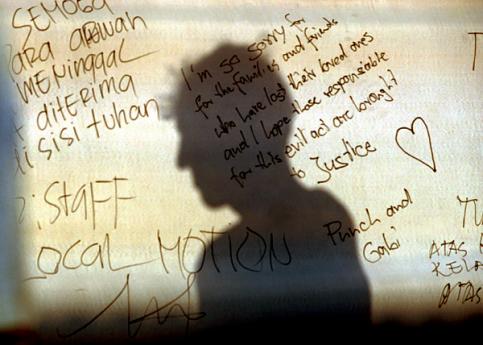 SEMOGA
PARA ARWAH
MENINGGAL
DITERIMA
di sisi tuhan
: STAFF
LOCAL MOTION
I'm so sorry for
for the families and friends
who have lost their loved ones
and I hope those responsible
for this evil act are brought
to Justice
Punch and
Gabi
T
TU
ATAS
KELA
ATAS